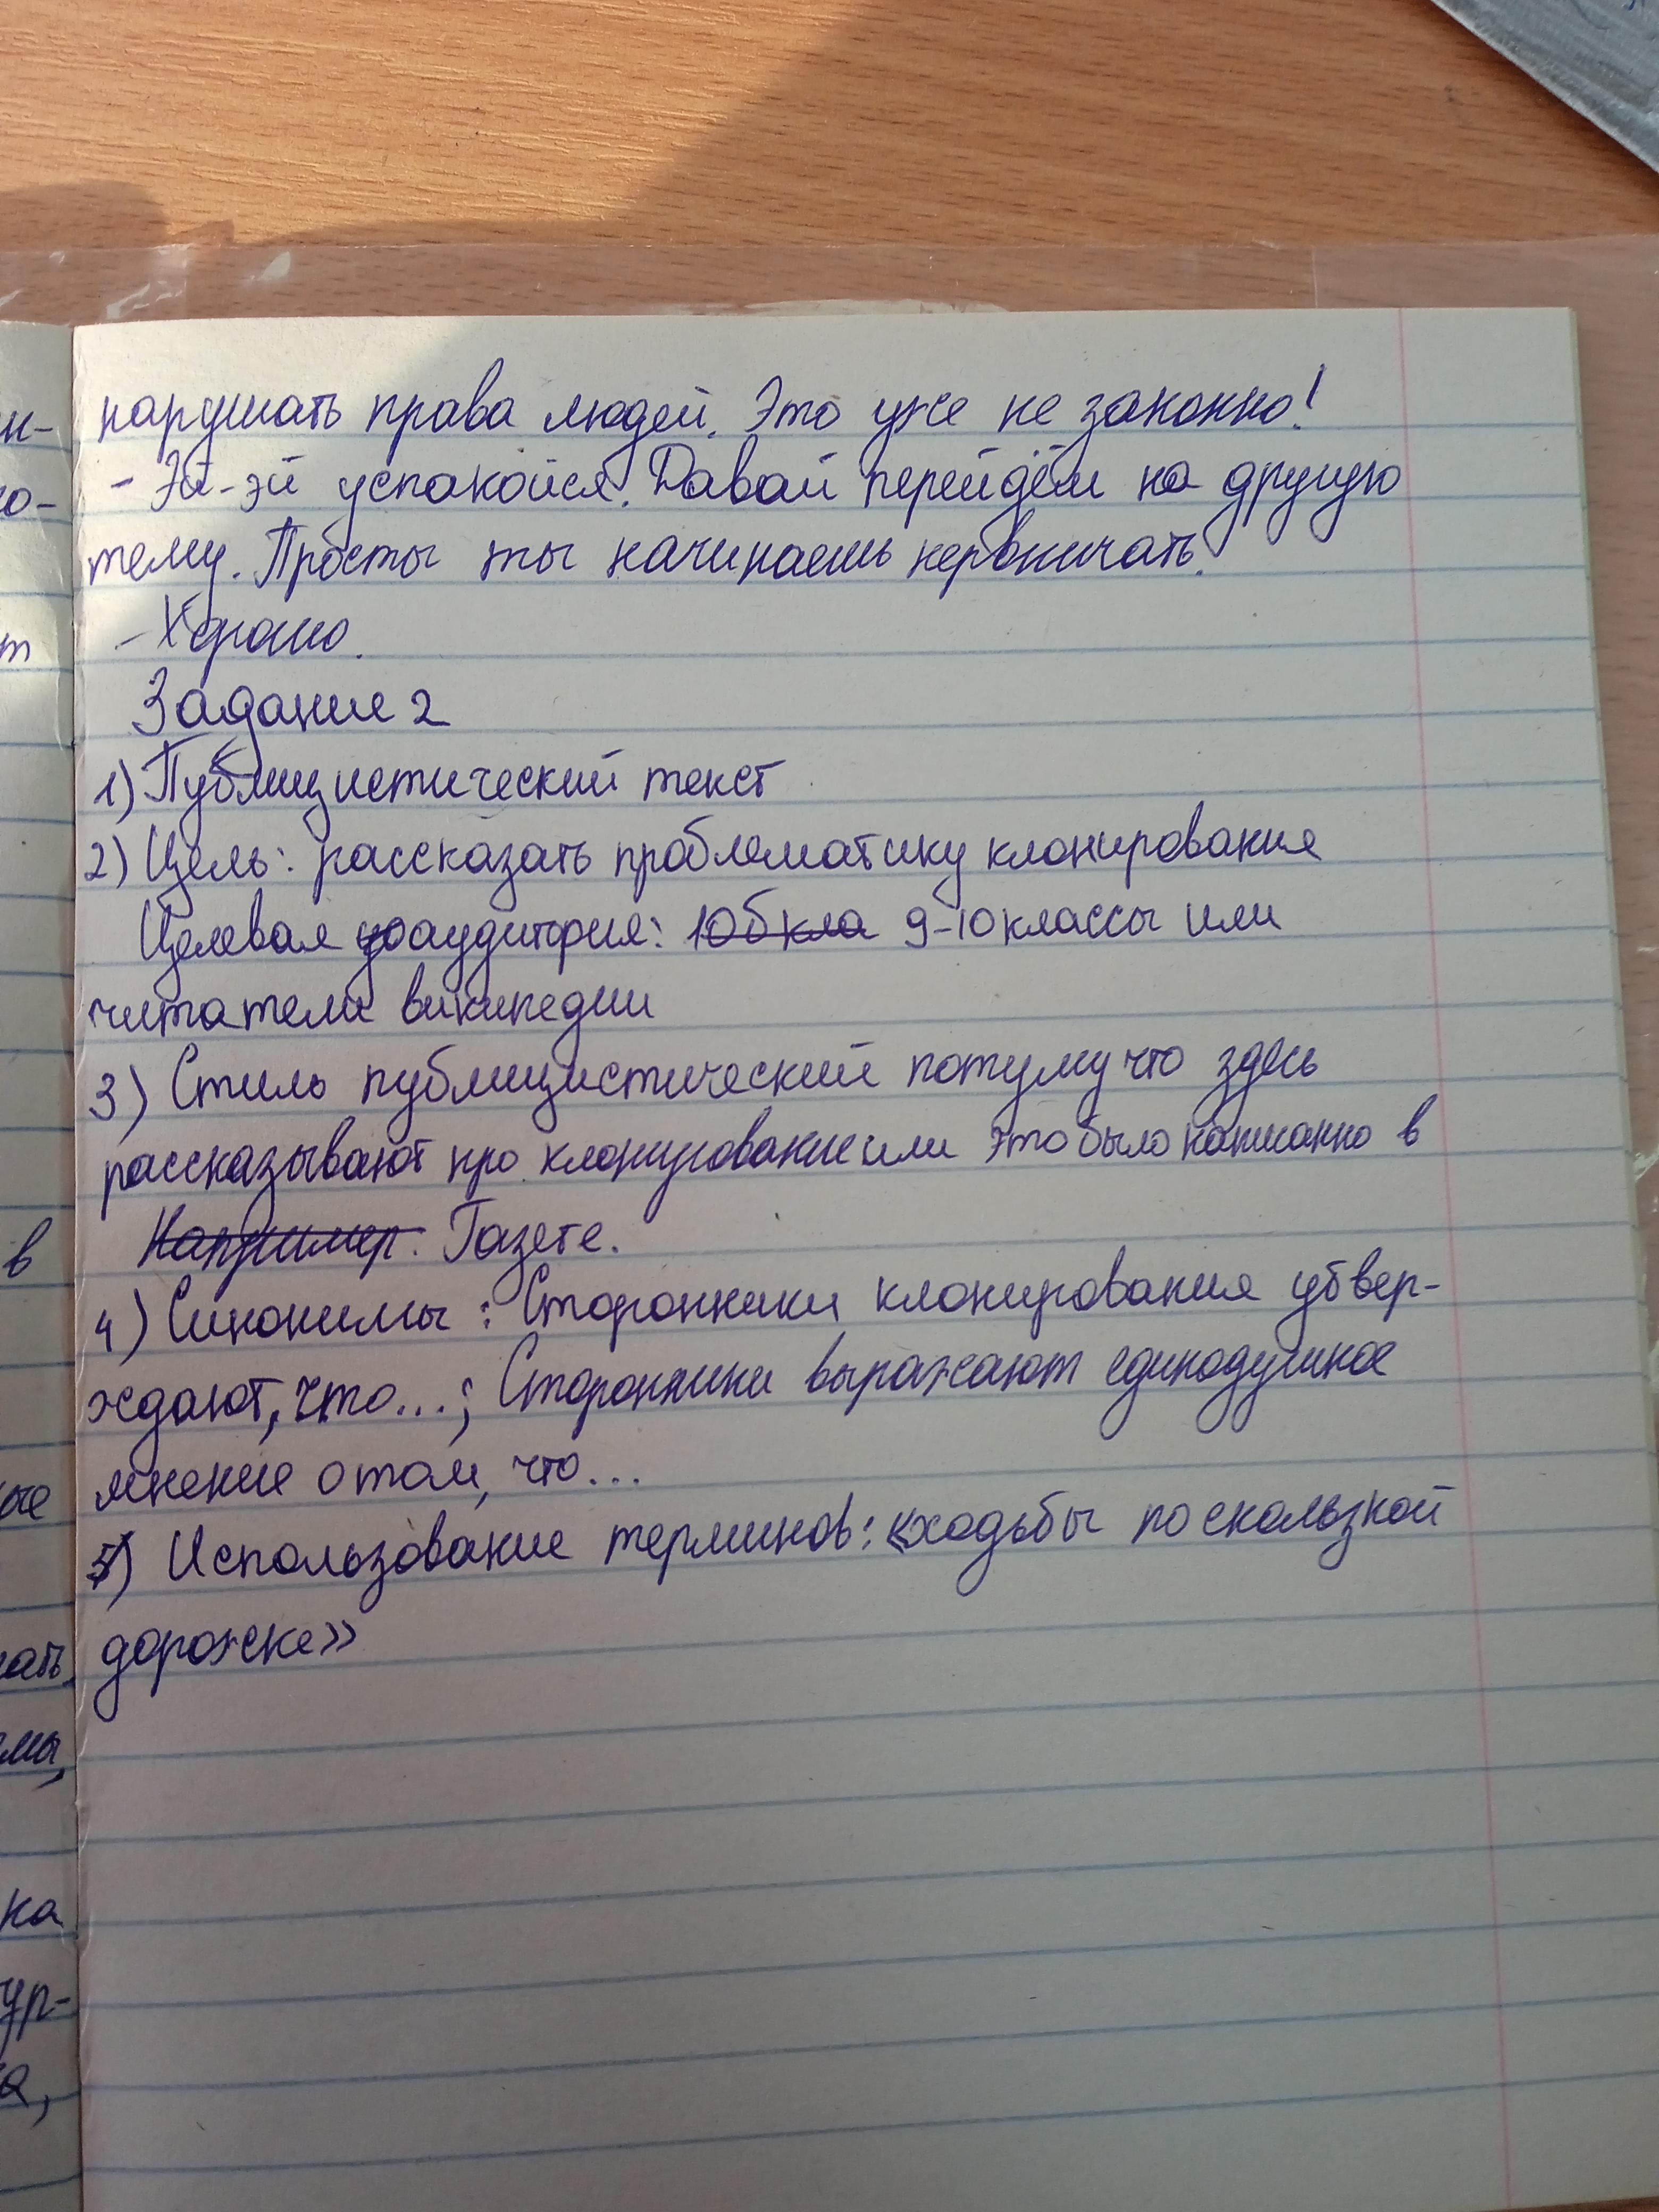 нарушать права людей. Это уже не законно!
- Эй-эй успакойся. Давай перейдём на другую
тему. Просты ты начинаешь нервничать.
- Хорошо.
Задание 2
1) Публицистический текст
2) Цель: рассказать проблематику клонирования
Целевая аудитория: 10б кла 9-10 классы или
читатели википедии
3) Стиль публицистический потумучто здесь
рассказывают про клонирование или это было написанно в
Например. Газете.
4) Синонимы: Сторонники клонирования утвер-
ждают, что...; Сторонники выражают единодушное
мнение о том, что...
5) Использование терминов: «ходьбы по скользкой
дорожке»
н-
о-
т
в
ые
ать
мы,
ка
ур-
а,